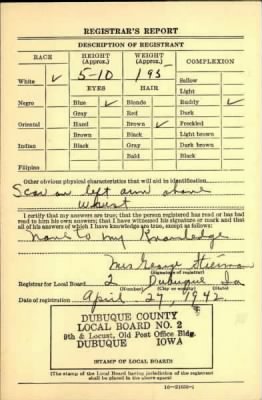 REGISTRAR'S REPORT
DESCRIPTION OF REGISTRANT
RACE HEIGHT (Approx.) WEIGHT (Approx.) COMPLEXION
White ✓ 5-10 193 Sallow
EYES HAIR Light
Negro Blue ✓ Blonde Ruddy ✓
Gray Red Dark
Oriental Hazel Brown ✓ Freckled
Brown Black Light brown
Indian Black Gray Dark brown
Bald Black
Filipino
Other obvious physical characteristics that will aid in identification
Scar on left arm above
wrist
I certify that my answers are true; that the person registered has read or has had
read to him his own answers; that I have witnessed his signature or mark and that
all of his answers of which I have knowledge are true, except as follows:
None to my Knowledge
Mrs George
(Signature of registrar)
Registrar for Local Board 2 Dubuque Ia
(Number) (City or county) (State)
Date of registration April 27, 1942
DUBUQUE COUNTY
LOCAL BOARD NO. 2
9th & Locust, Old Post Office Bldg.
DUBUQUE IOWA
(STAMP OF LOCAL BOARD)
(The stamp of the Local Board having jurisdiction of the registrant
shall be placed in the above space)